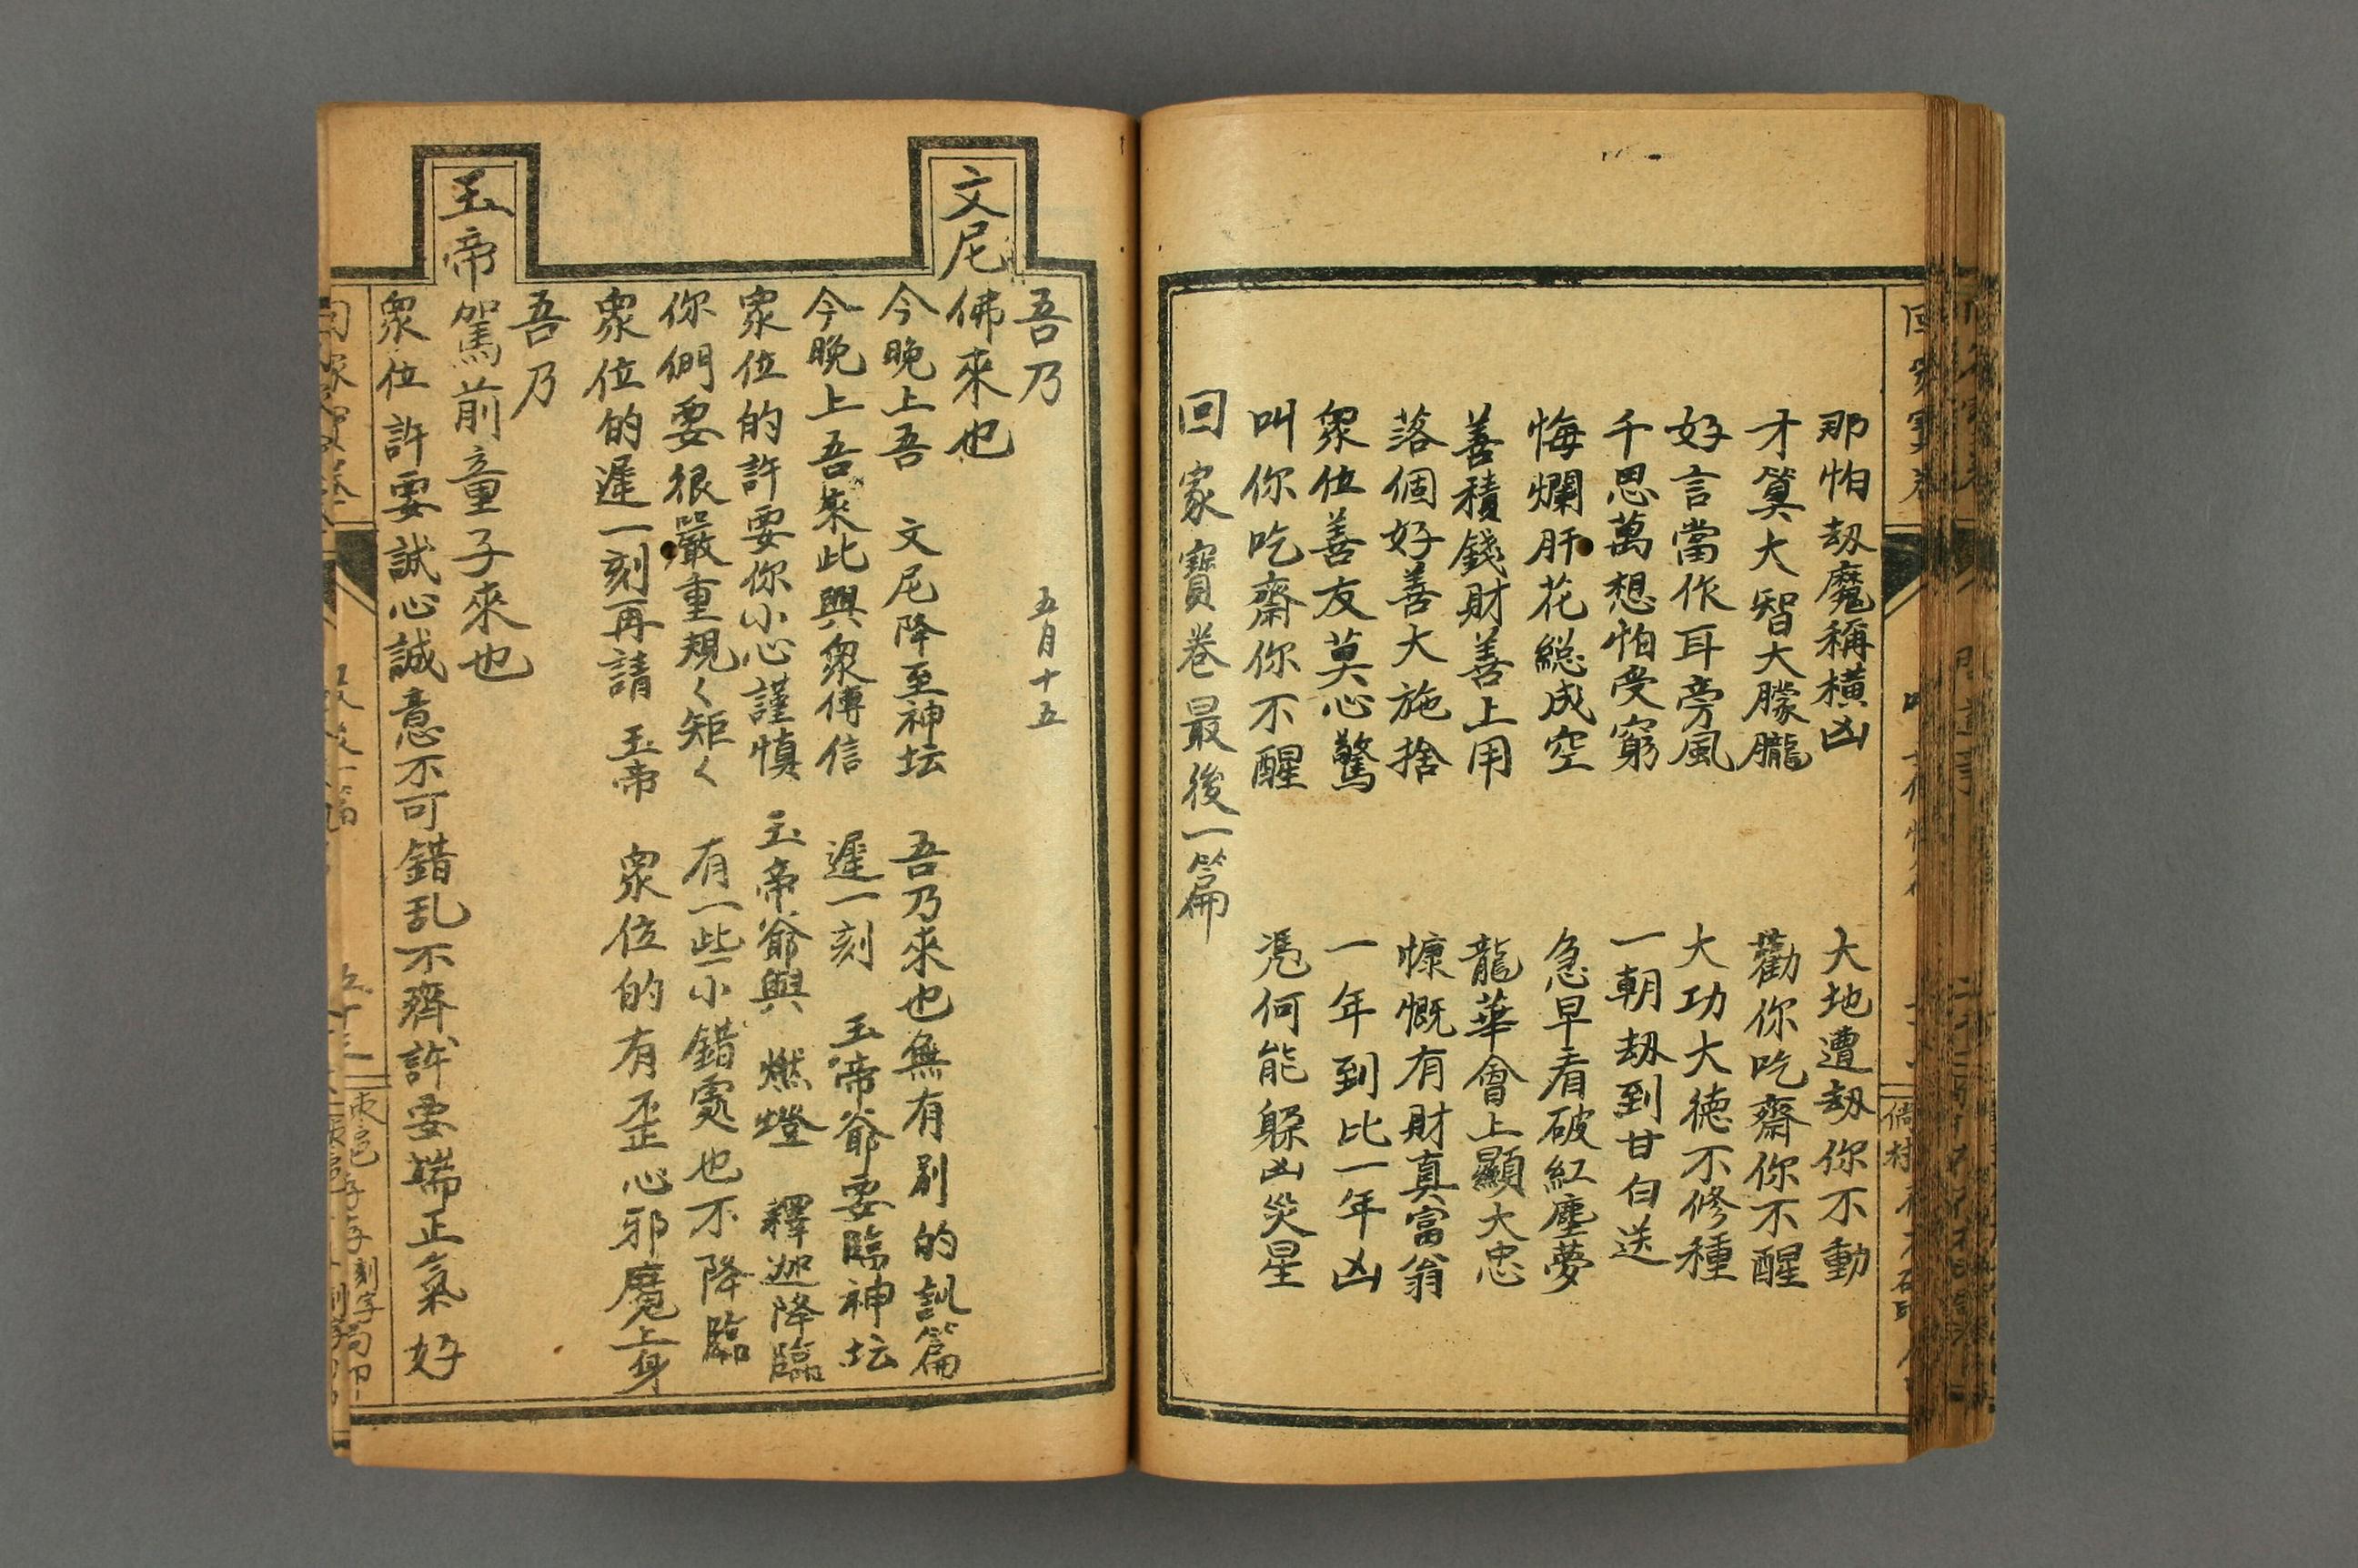 那怕刼魔稱横凶 大地遭刼你不動
才算大智大朦朧 勸你吃齋你不醒
好言當作耳旁風 大功大德不修種
千思萬想怕受窮 一朝刼到甘白送
悔爛肝花總成空 急早看破紅塵夢
善積錢財善上用 龍華會上顯大忠
落個好善大施捨 慷慨有財真富翁
衆位善友莫心驚 一年到比一年凶
叫你吃齋你不醒 凴何能躲凶災星
回家寶卷最後一篇
五月十五
吾乃
文尼佛來也
今晚上吾 文尼降至神坛 吾乃來也無有别的訓篇
今晚上吾來此與衆傳信 遲一刻 玉帝爺要臨神坛
衆位的許要你小心謹慎 玉帝爺與 燃燈 釋迦降臨
你們要很嚴重規〱矩〱 有一些小錯處也不降臨
衆位的遲一刻再請 玉帝 衆位的有歪心邪魔上身
吾乃
玉帝駕前童子來也
衆位許要誠心誠意不可錯乱不齊許要端正氣好